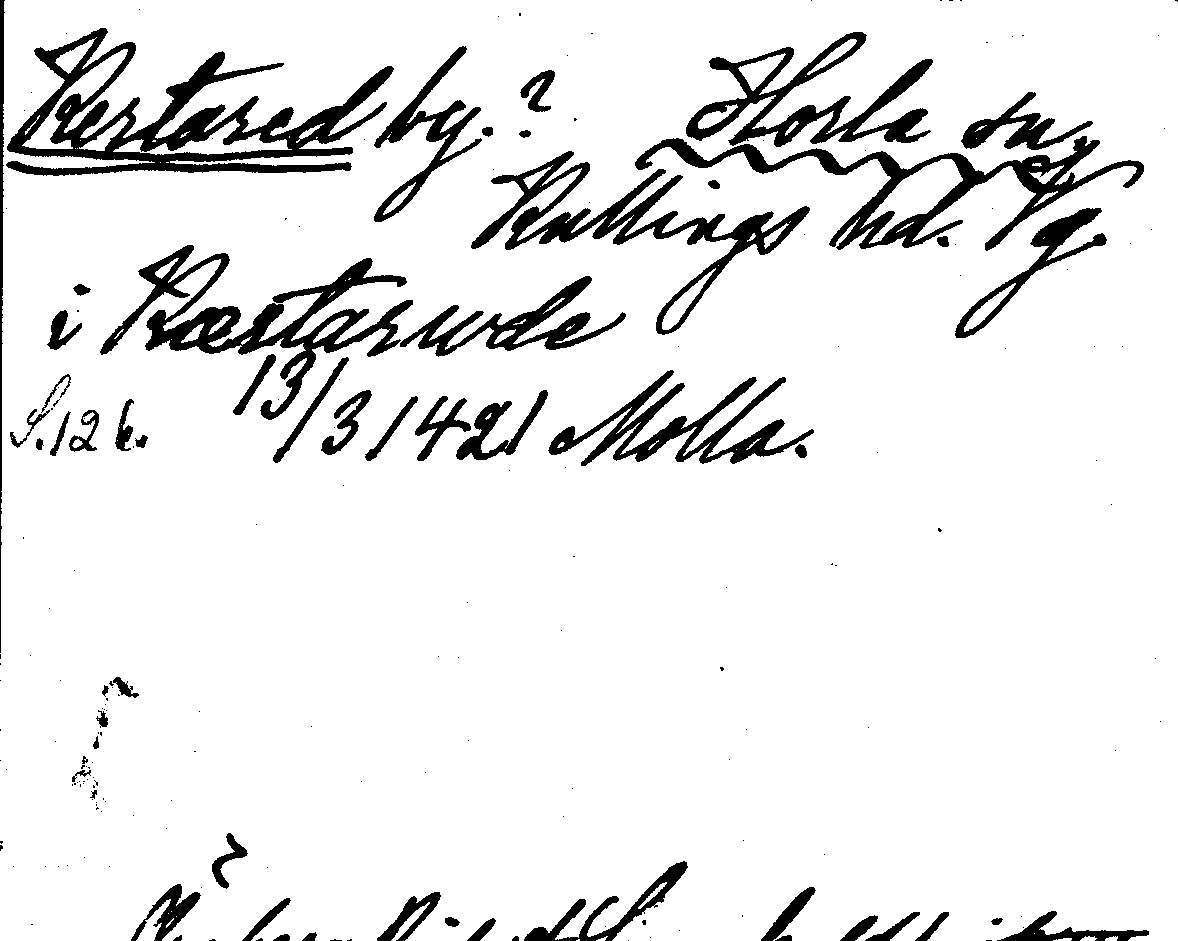 Kestared by.? Horla sn.
Kullings hd. Vg.
i Kæstarude
S.12 b. 13/3 1421 Molla.